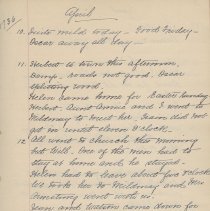 April
10. Quite mild today - Good Friday -
Oscar away all day -
11. Herbert to town this afternoon.
Damp - roads not good. Oscar
splitting wood.
Helen came home for Easter Sunday
Herbert - Aunt Annie and I went to
Wildmay to meet her. Train did not
get in until eleven o'clock -
12. All went to church this morning
but Will. One of the men had to
stay at home and he stayed.
Helen had to leave about five o'clock
We took her to Wildmay and Mrs
Armstrong went with us.
Jean and Watson came down for